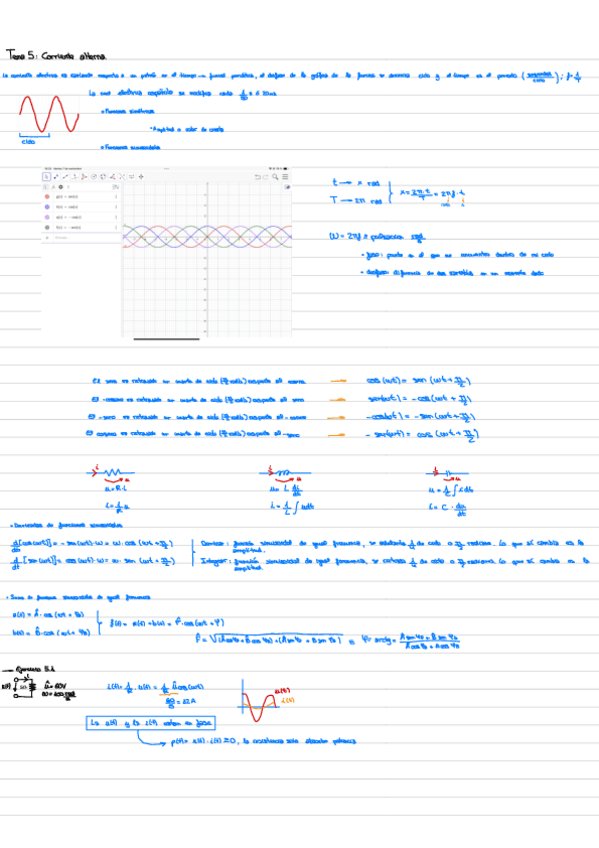 Tema 5: Corriente alterna.
La corriente electrica es variante respecto a un patrón en el tiempo → funcion periódica, el de la gráfica de la funcion se denomina ciclo y el tiempo es el periodo (segundos/ciclo); f = 1/T
La red eléctrica española se modifica cada 1/50 = 20 ms
• Funciones simétricas
ciclo
• Amplitud = valor de cresta
• Funciones sinusoidales
t → x rad
T → 2π rad
x = 2π·t/T = 2πf·t
ω = 2πf = pulsacion rad/s
- fase: punto en el que se encuentra dentro de un ciclo
- desfase: diferencia de dos en un momento dado
El seno es retrasado un cuarto de ciclo (π/2 rads) respecto al coseno → cos(ωt) = sen(ωt + π/2)
El -coseno es retrasado un cuarto de ciclo (π/2 rads) respecto al seno → sen(ωt) = -cos(ωt + π/2)
El -seno es retrasado un cuarto de ciclo (π/2 rads) respecto al -coseno → -cos(ωt) = -sen(ωt + π/2)
El coseno es retrasado un cuarto de ciclo (π/2 rads) respecto al -seno → -sen(ωt) = cos(ωt + π/2)
i i i
u u u
u = R·i u = L di/dt u = 1/C ∫ i dt
i = 1/R u i = 1/L ∫ u dt i = C · du/dt
• Derivadas de funciones sinusoidales
d/dt [cos(ωt)] = -sen(ωt)·ω = ω·cos(ωt + π/2)
d/dt [sen(ωt)] = cos(ωt)·ω = ω·sen(ωt + π/2)
Derivar: función sinusoidal de igual frecuencia, se adelanta 1/4 de ciclo o π/2 radianes. Lo que sí cambia es la amplitud.
Integrar: función sinusoidal de igual frecuencia, se retrasa 1/4 de ciclo o π/2 radianes. Lo que sí cambia es la amplitud.
• Suma de funciones sinusoidales de igual frecuencia
a(t) = Â·cos(ωt + φa)
b(t) = B̂·cos(ωt + φb)
f(t) = a(t) + b(t) = F̂·cos(ωt + φ)
→ Ejercicio 5.1
u(t) û = 60V
i(t) = 1/R · u(t) = 1/R · û cos(ωt)
60/5 = 12 A
u(t)
i(t)
La u(t) y la i(t) están en fase
p(t) = u(t)·i(t) ≥ 0, la resistencia solo absorbe potencia